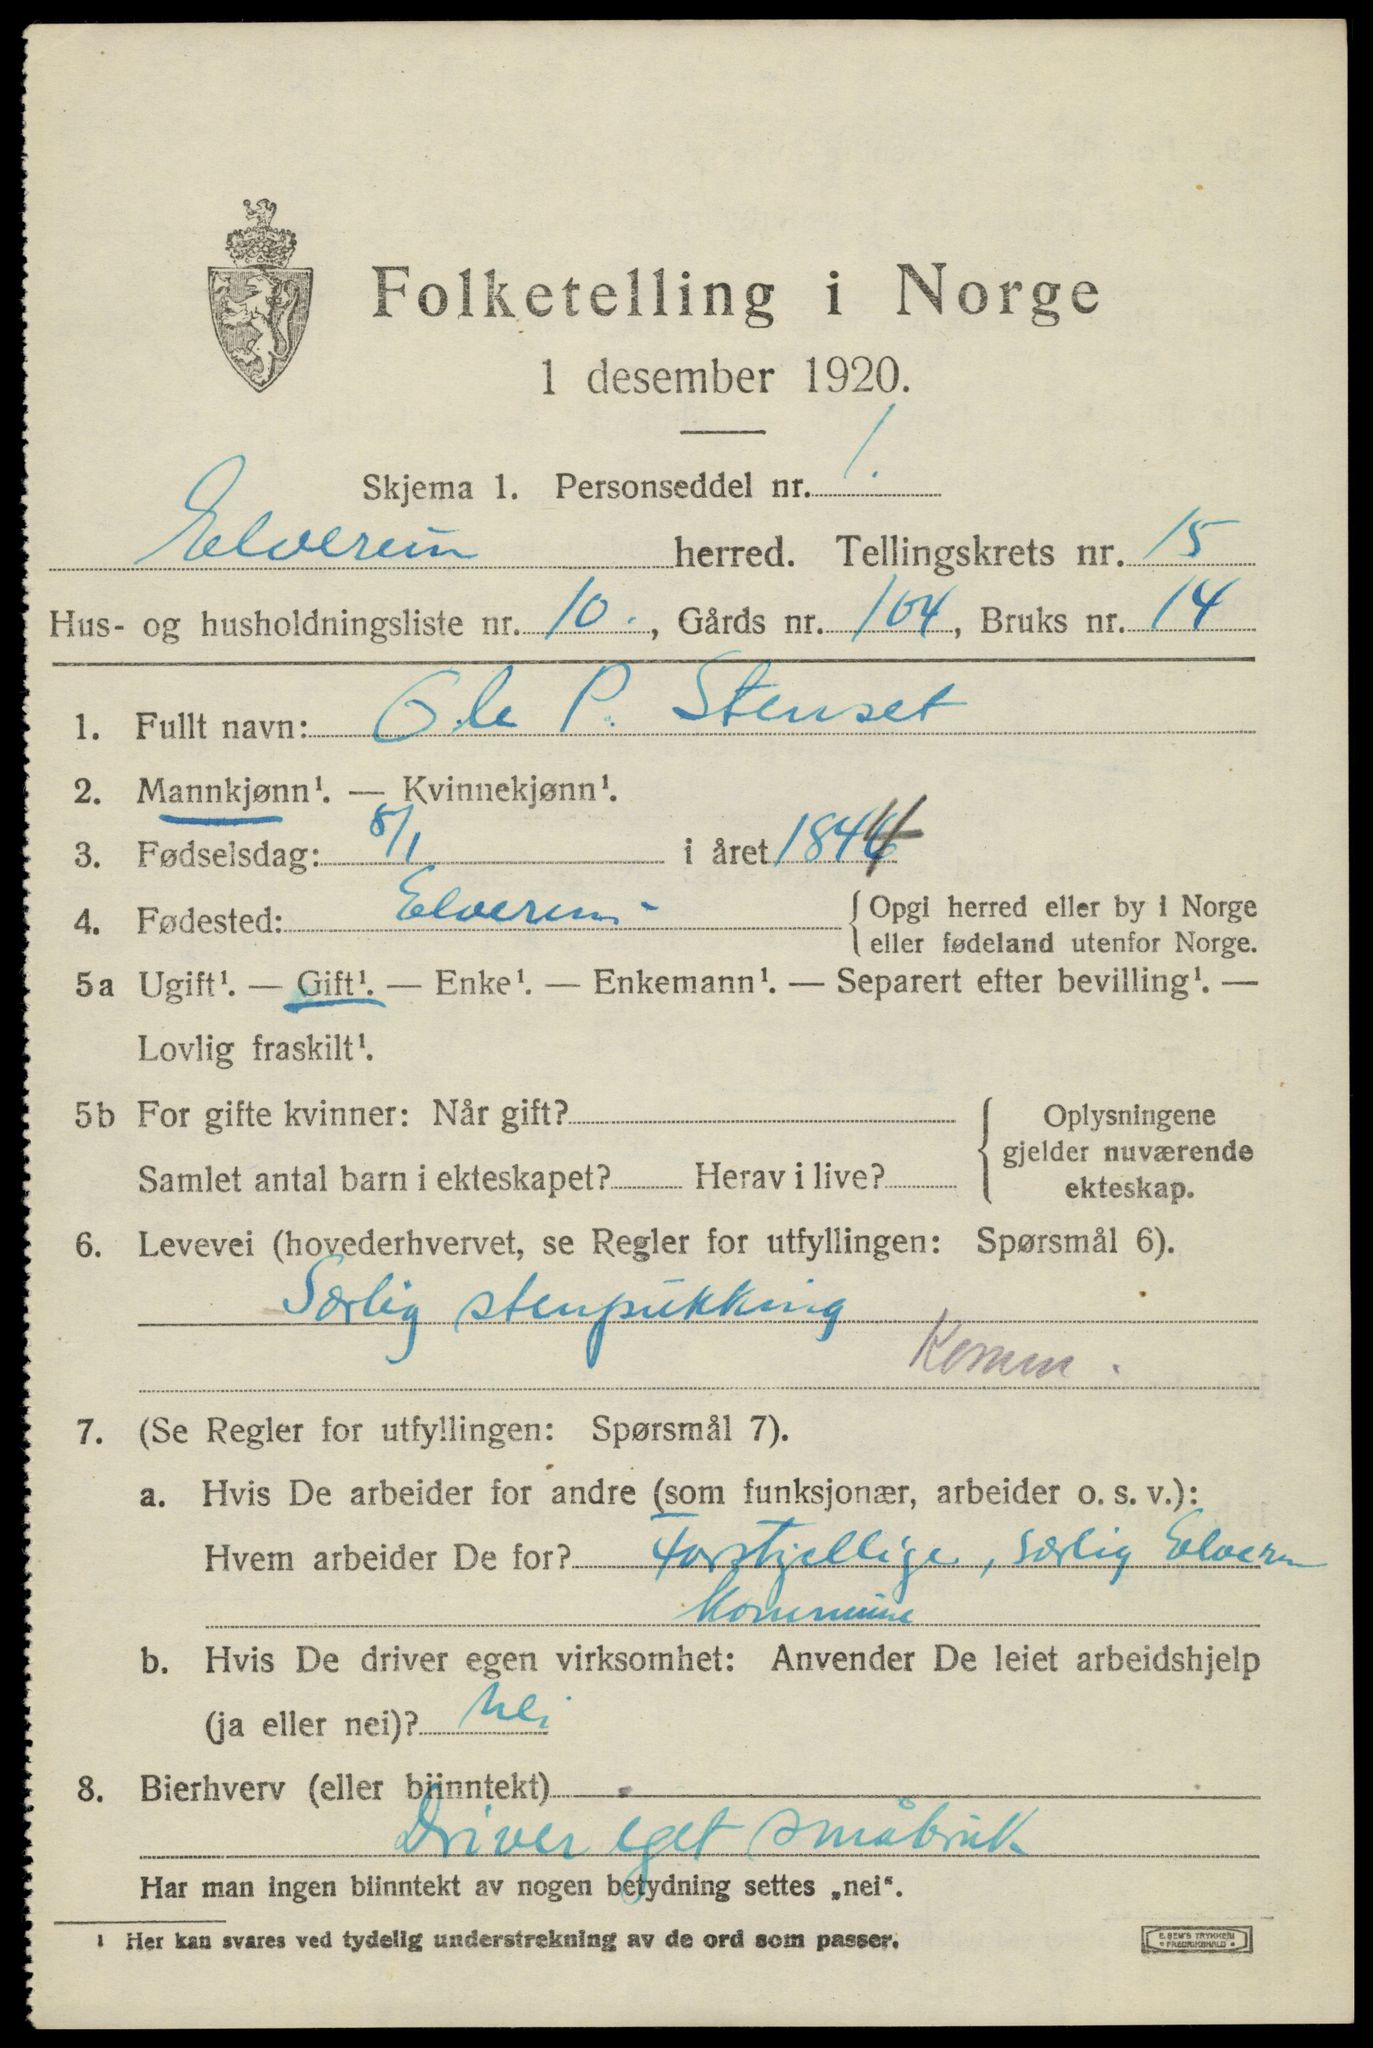 Folketelling i Norge
1 desember 1920.
Skjema 1. Personseddel nr. 1.
Elverum herred. Tellingskrets nr. 15
Hus- og husholdningsliste nr. 10., Gårds nr. 104, Bruks nr. 14
1. Fullt navn: Ole P. Stenset
2. Mannkjønn¹. — Kvinnekjønn¹.
3. Fødselsdag: 8/1 i året 1844
4. Fødested: Elverum {Opgi herred eller by i Norge
eller fødeland utenfor Norge.
5a Ugift¹. — Gift¹. — Enke¹. — Enkemann¹. — Separert efter bevilling¹. —
Lovlig fraskilt¹.
5b For gifte kvinner: Når gift? { Oplysningene
gjelder nuværende
Samlet antal barn i ekteskapet? Herav i live? ekteskap.
6. Levevei (hovederhvervet, se Regler for utfyllingen: Spørsmål 6).
Særlig stenpukking
Komm.
7. (Se Regler for utfyllingen: Spørsmål 7).
a. Hvis De arbeider for andre (som funksjonær, arbeider o. s. v.):
Hvem arbeider De for? Forskjellige, særlig Elverum
Kommune
b. Hvis De driver egen virksomhet: Anvender De leiet arbeidshjelp
(ja eller nei)? nei
8. Bierhverv (eller biinntekt)
Driver eget småbruk
Har man ingen biinntekt av nogen betydning settes „nei“.
¹ Her kan svares ved tydelig understrekning av de ord som passer.
E. SEM'S TRYKKERI
• FREDRIKSHALD •